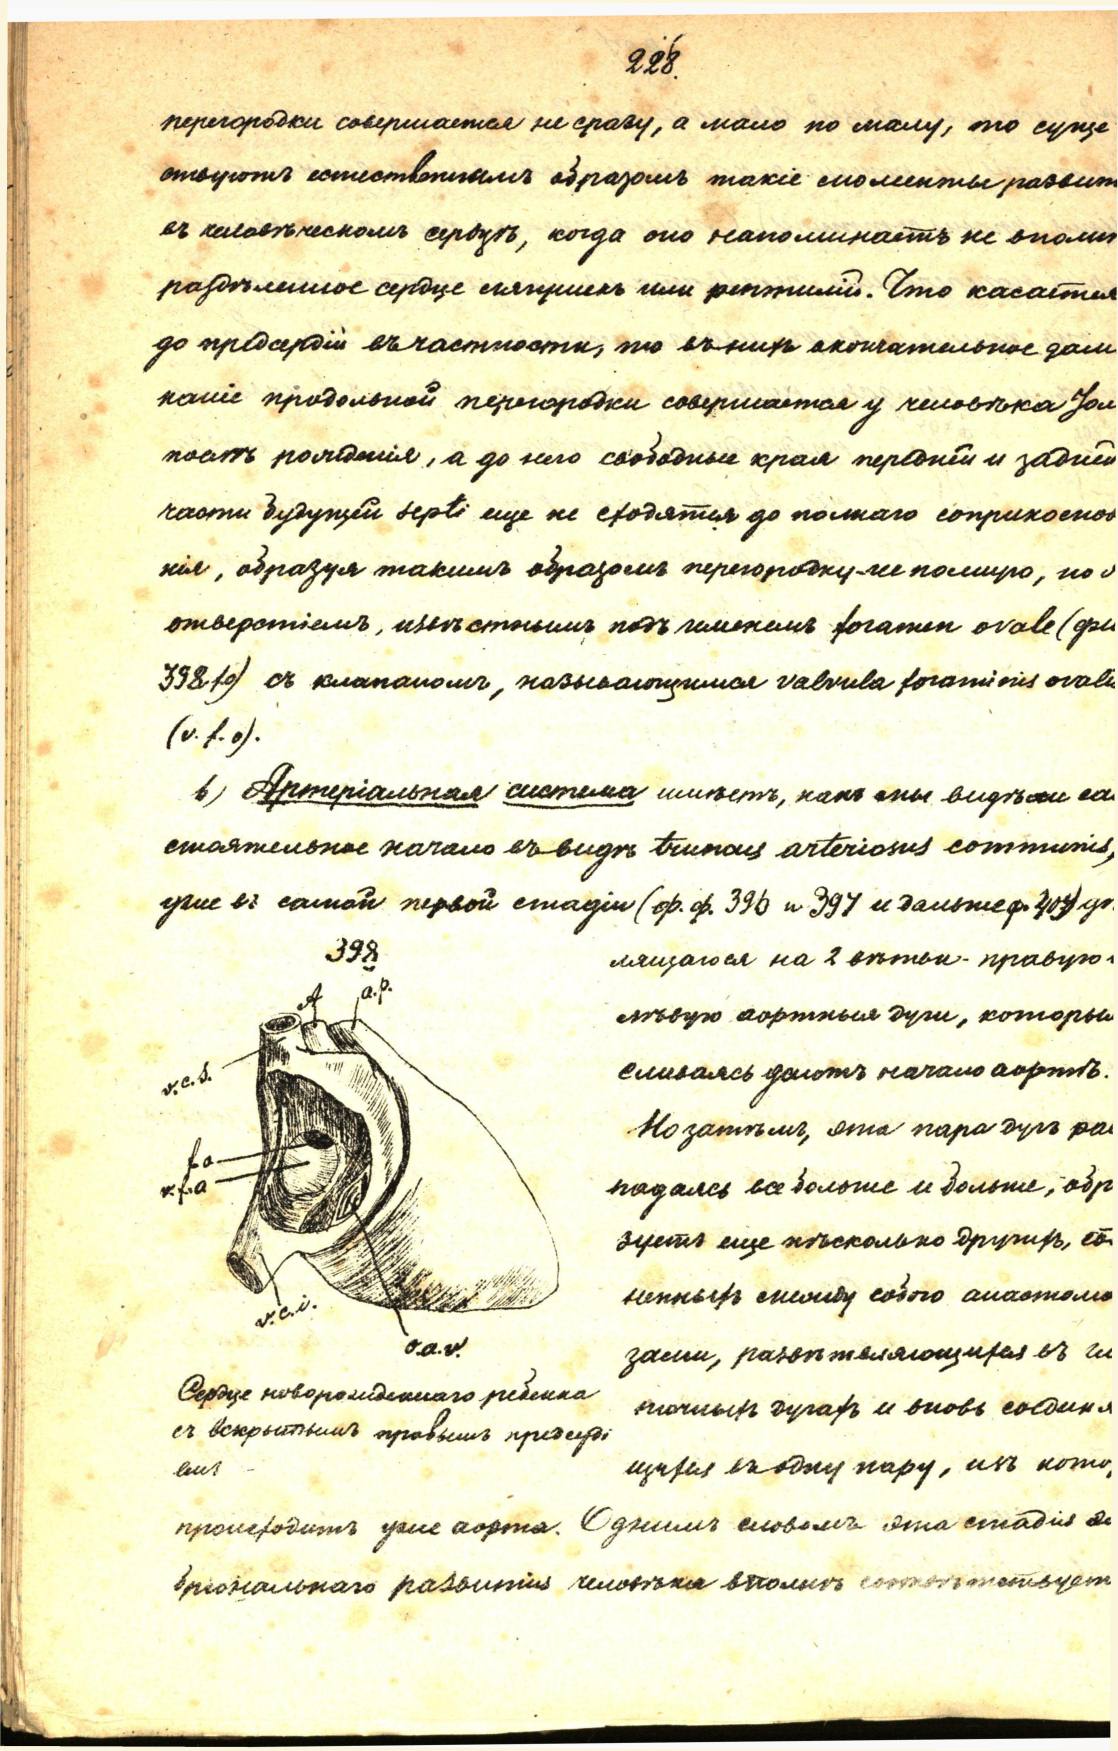 228.
перегородки совершается не сразу, а мало по малу, то суще
ствуютъ естественнымъ образомъ такіе моменты развит
въ человѣческомъ сердцѣ, когда оно напоминаетъ не вполн
раздѣленное сердце ящерицъ или рептилій. Что касается
до предсердій въ частности, то въ нихъ окончательное замы
каніе продольной перегородки совершается у человѣка
послѣ рожденія, а до него свободные края передней и задней
части будущей septi еще не сходятся до полнаго соприкоснов
нія, образуя такимъ образомъ перегородку не полную, но с
отверстіемъ, извѣстнымъ подъ именемъ foramen ovale (фи
398 fo) съ клапаномъ, называющимся valvula foraminis ovalis
(v. f. o).
b) Артеріальная система имѣетъ, какъ мы видѣли са
стоятельное начало въ видѣ truncus arteriosus communis,
уже въ самой первой стадіи (ф. ф. 396 и 397 и дальше ф. 404) дѣ
398
A
a.p.
v.c.s.
f.o
v.f.o
v.c.i.
o.a.v.
Сердце новорожденнаго ребенка
съ вскрытымъ правымъ предсерді
емъ
лящагося на 2 вѣтви - правую и
лѣвую аортныя дуги, которыя
сливаясь даютъ начало аортѣ.
Но затѣмъ, эта пара дугъ рас
падаясь все больше и больше, обр
зуетъ еще нѣсколько другихъ, со
ненныхъ между собою анастомо
зами, развѣтвляющихся въ гл
точныхъ дугахъ и вновь соединя
щихся въ одну пару, изъ кото
происходитъ уже аорта. Однимъ словомъ эта стадія эм
бріональнаго развитія человѣка вполнѣ соотвѣтствуетъ